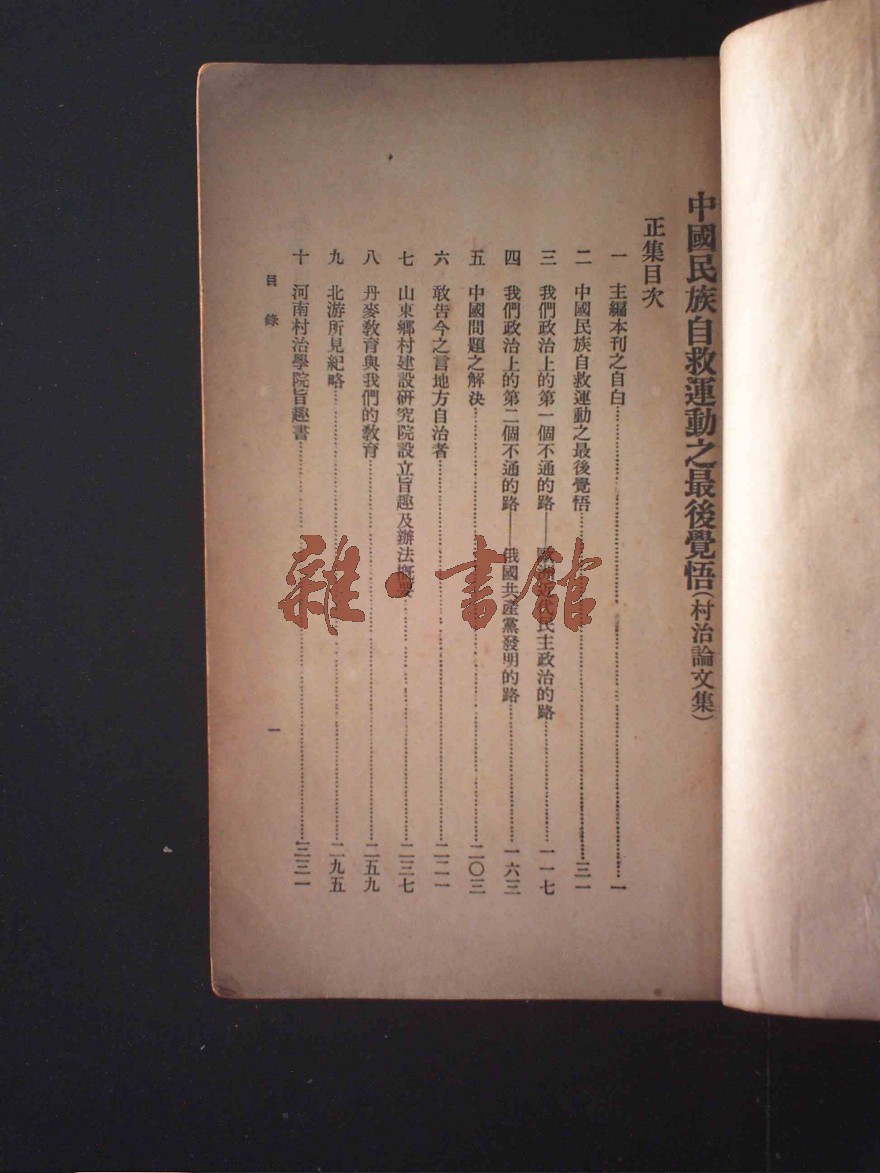 中國民族自救運動之最後覺悟(村治論文集)
正集目次
一 主編本刊之自白……一
二 中國民族自救運動之最後覺悟……三一
三 我們政治上的第一個不通的路——歐洲近代民主政治的路……一一七
四 我們政治上的第二個不通的路——俄國共產黨發明的路……一六三
五 中國問題之解決……二〇三
六 敢告今之言地方自治者……二二一
七 山東鄉村建設研究院設立旨趣及辦法概要……二三七
八 丹麥教育與我們的教育……二五九
九 北游所見紀略……二九五
十 河南村治學院旨趣書……三三一
目錄
一
雜·書館